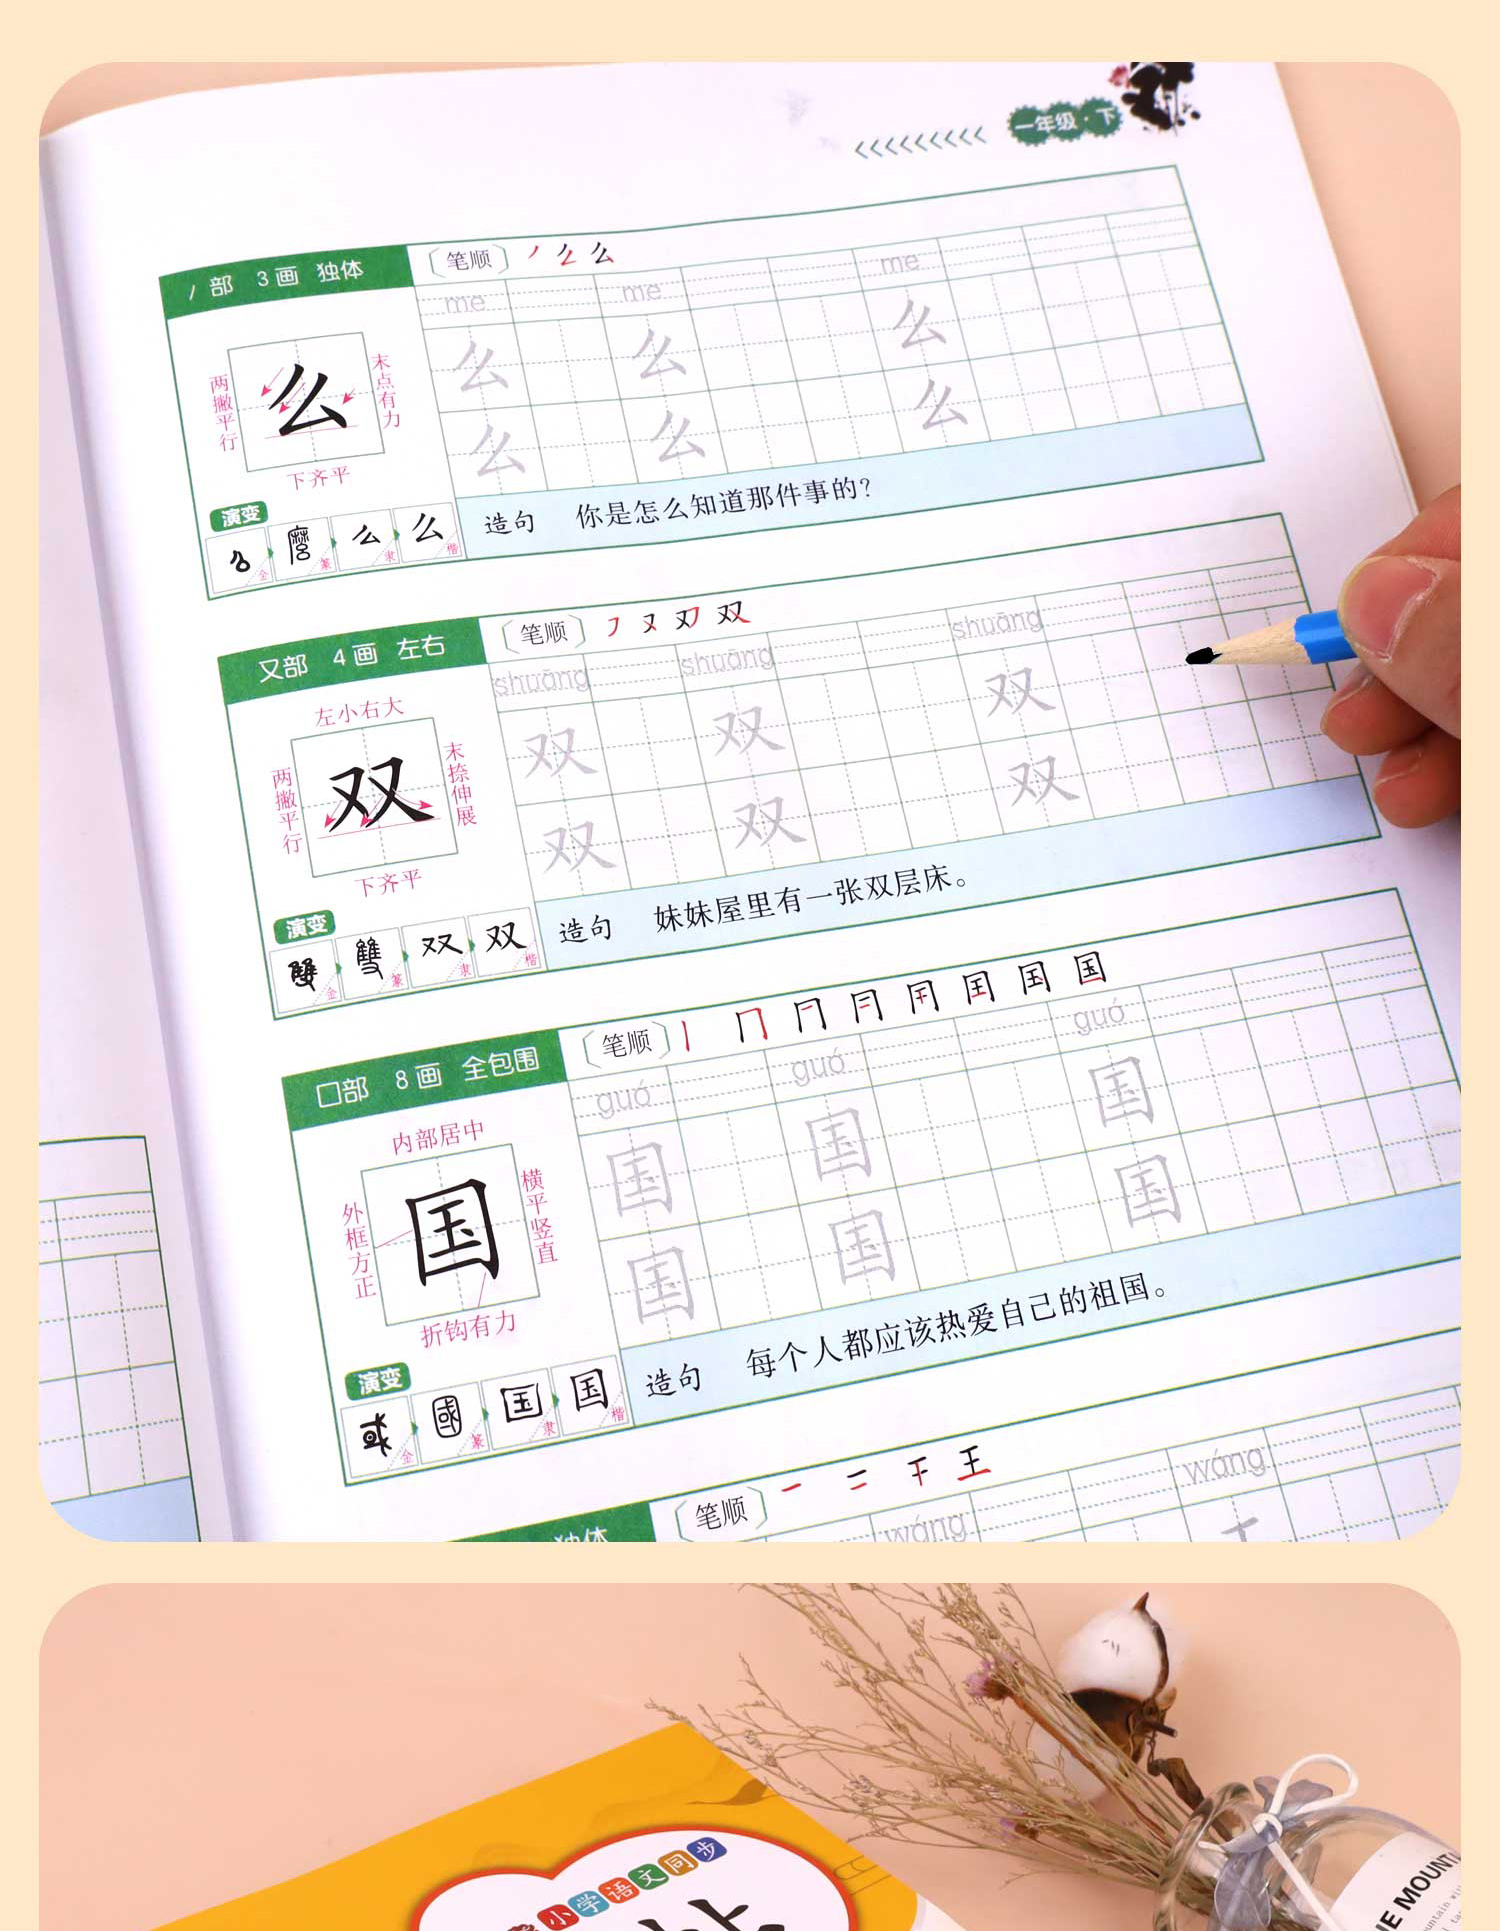 一年级·下
丿部 3画 独体
〔笔顺〕
me me me
么 么 么
么 么 么
么
两撇平行
末点有力
下齐平
演变
金 篆 隶 楷
造句 你是怎么知道那件事的？
又部 4画 左右
〔笔顺〕
shuāng shuāng shuāng
双 双 双
双 双 双
左小右大
双
两撇平行
末捺伸展
下齐平
演变
金 篆 隶 楷
造句 妹妹屋里有一张双层床。
囗部 8画 全包围
〔笔顺〕
guó guó guó
国 国 国
国 国 国
内部居中
国
外框方正
横平竖直
折钩有力
演变
金 篆 隶 楷
造句 每个人都应该热爱自己的祖国。
独体
〔笔顺〕
wáng wáng
小学语文同步
E MOUNT